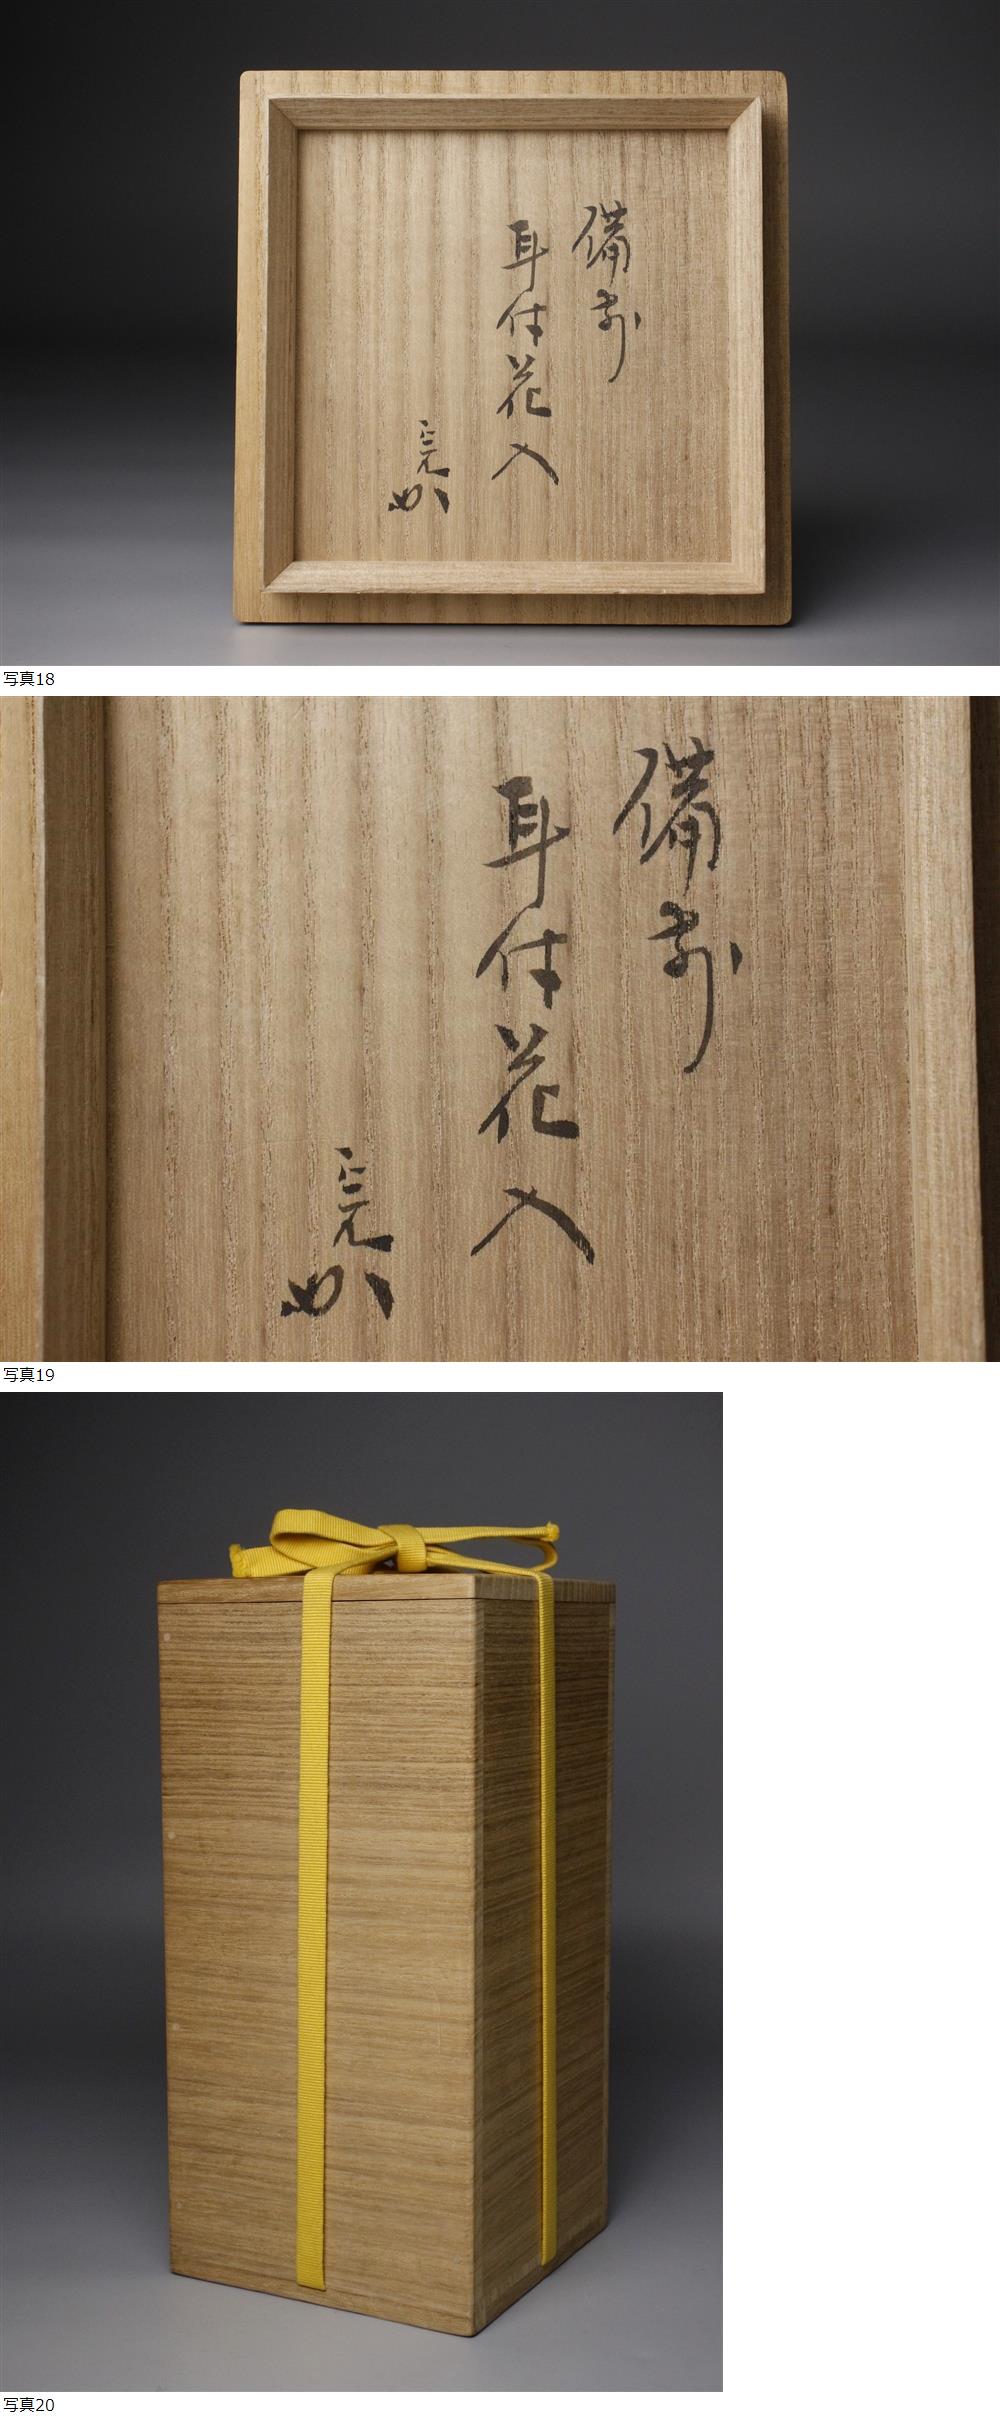 備前
耳付花入
写真18
備前
耳付花入
写真19
写真20